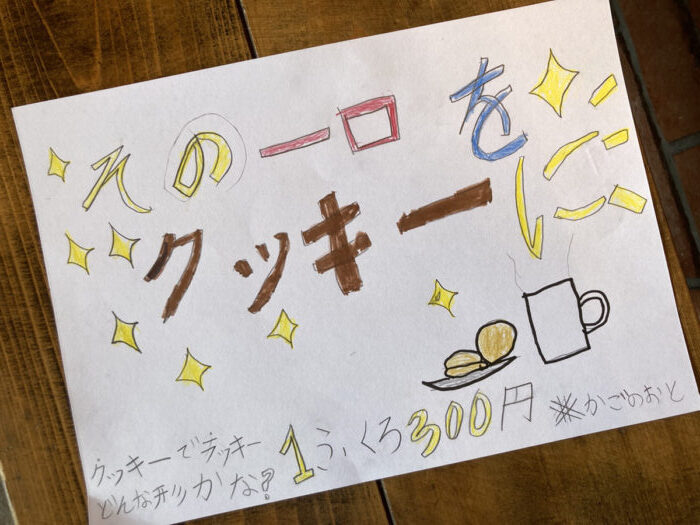 その一口を
クッキーに
クッキーでラッキー
どんな形かな?
1ふくろ300円
※かごのおと